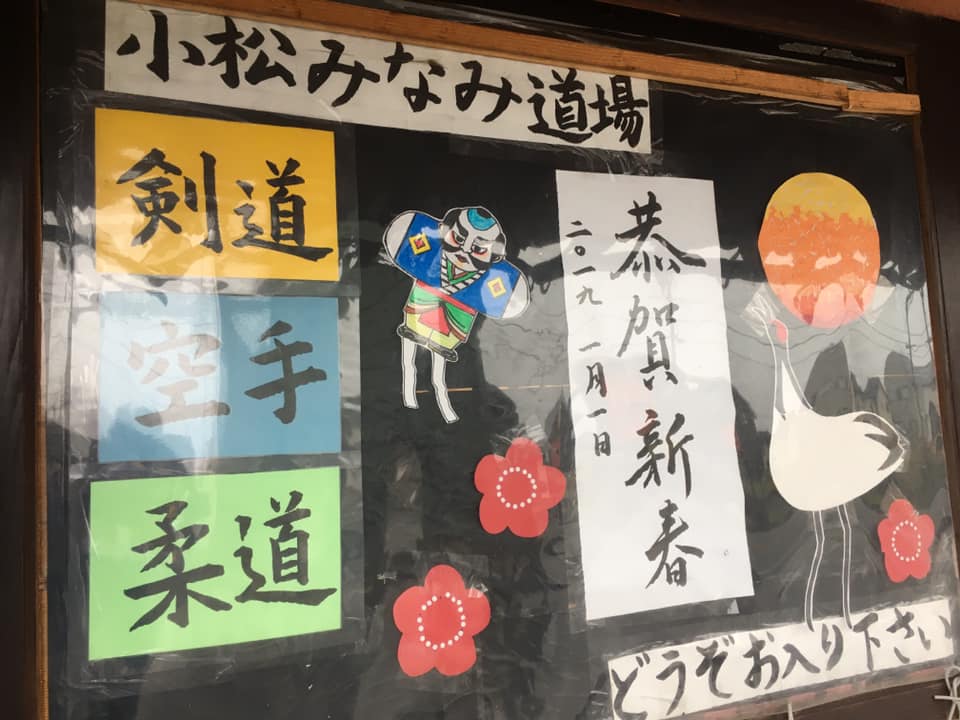 小松みなみ道場
剣道
空手
柔道
恭賀新春
二〇一九 一月一日
どうぞお入り下さい